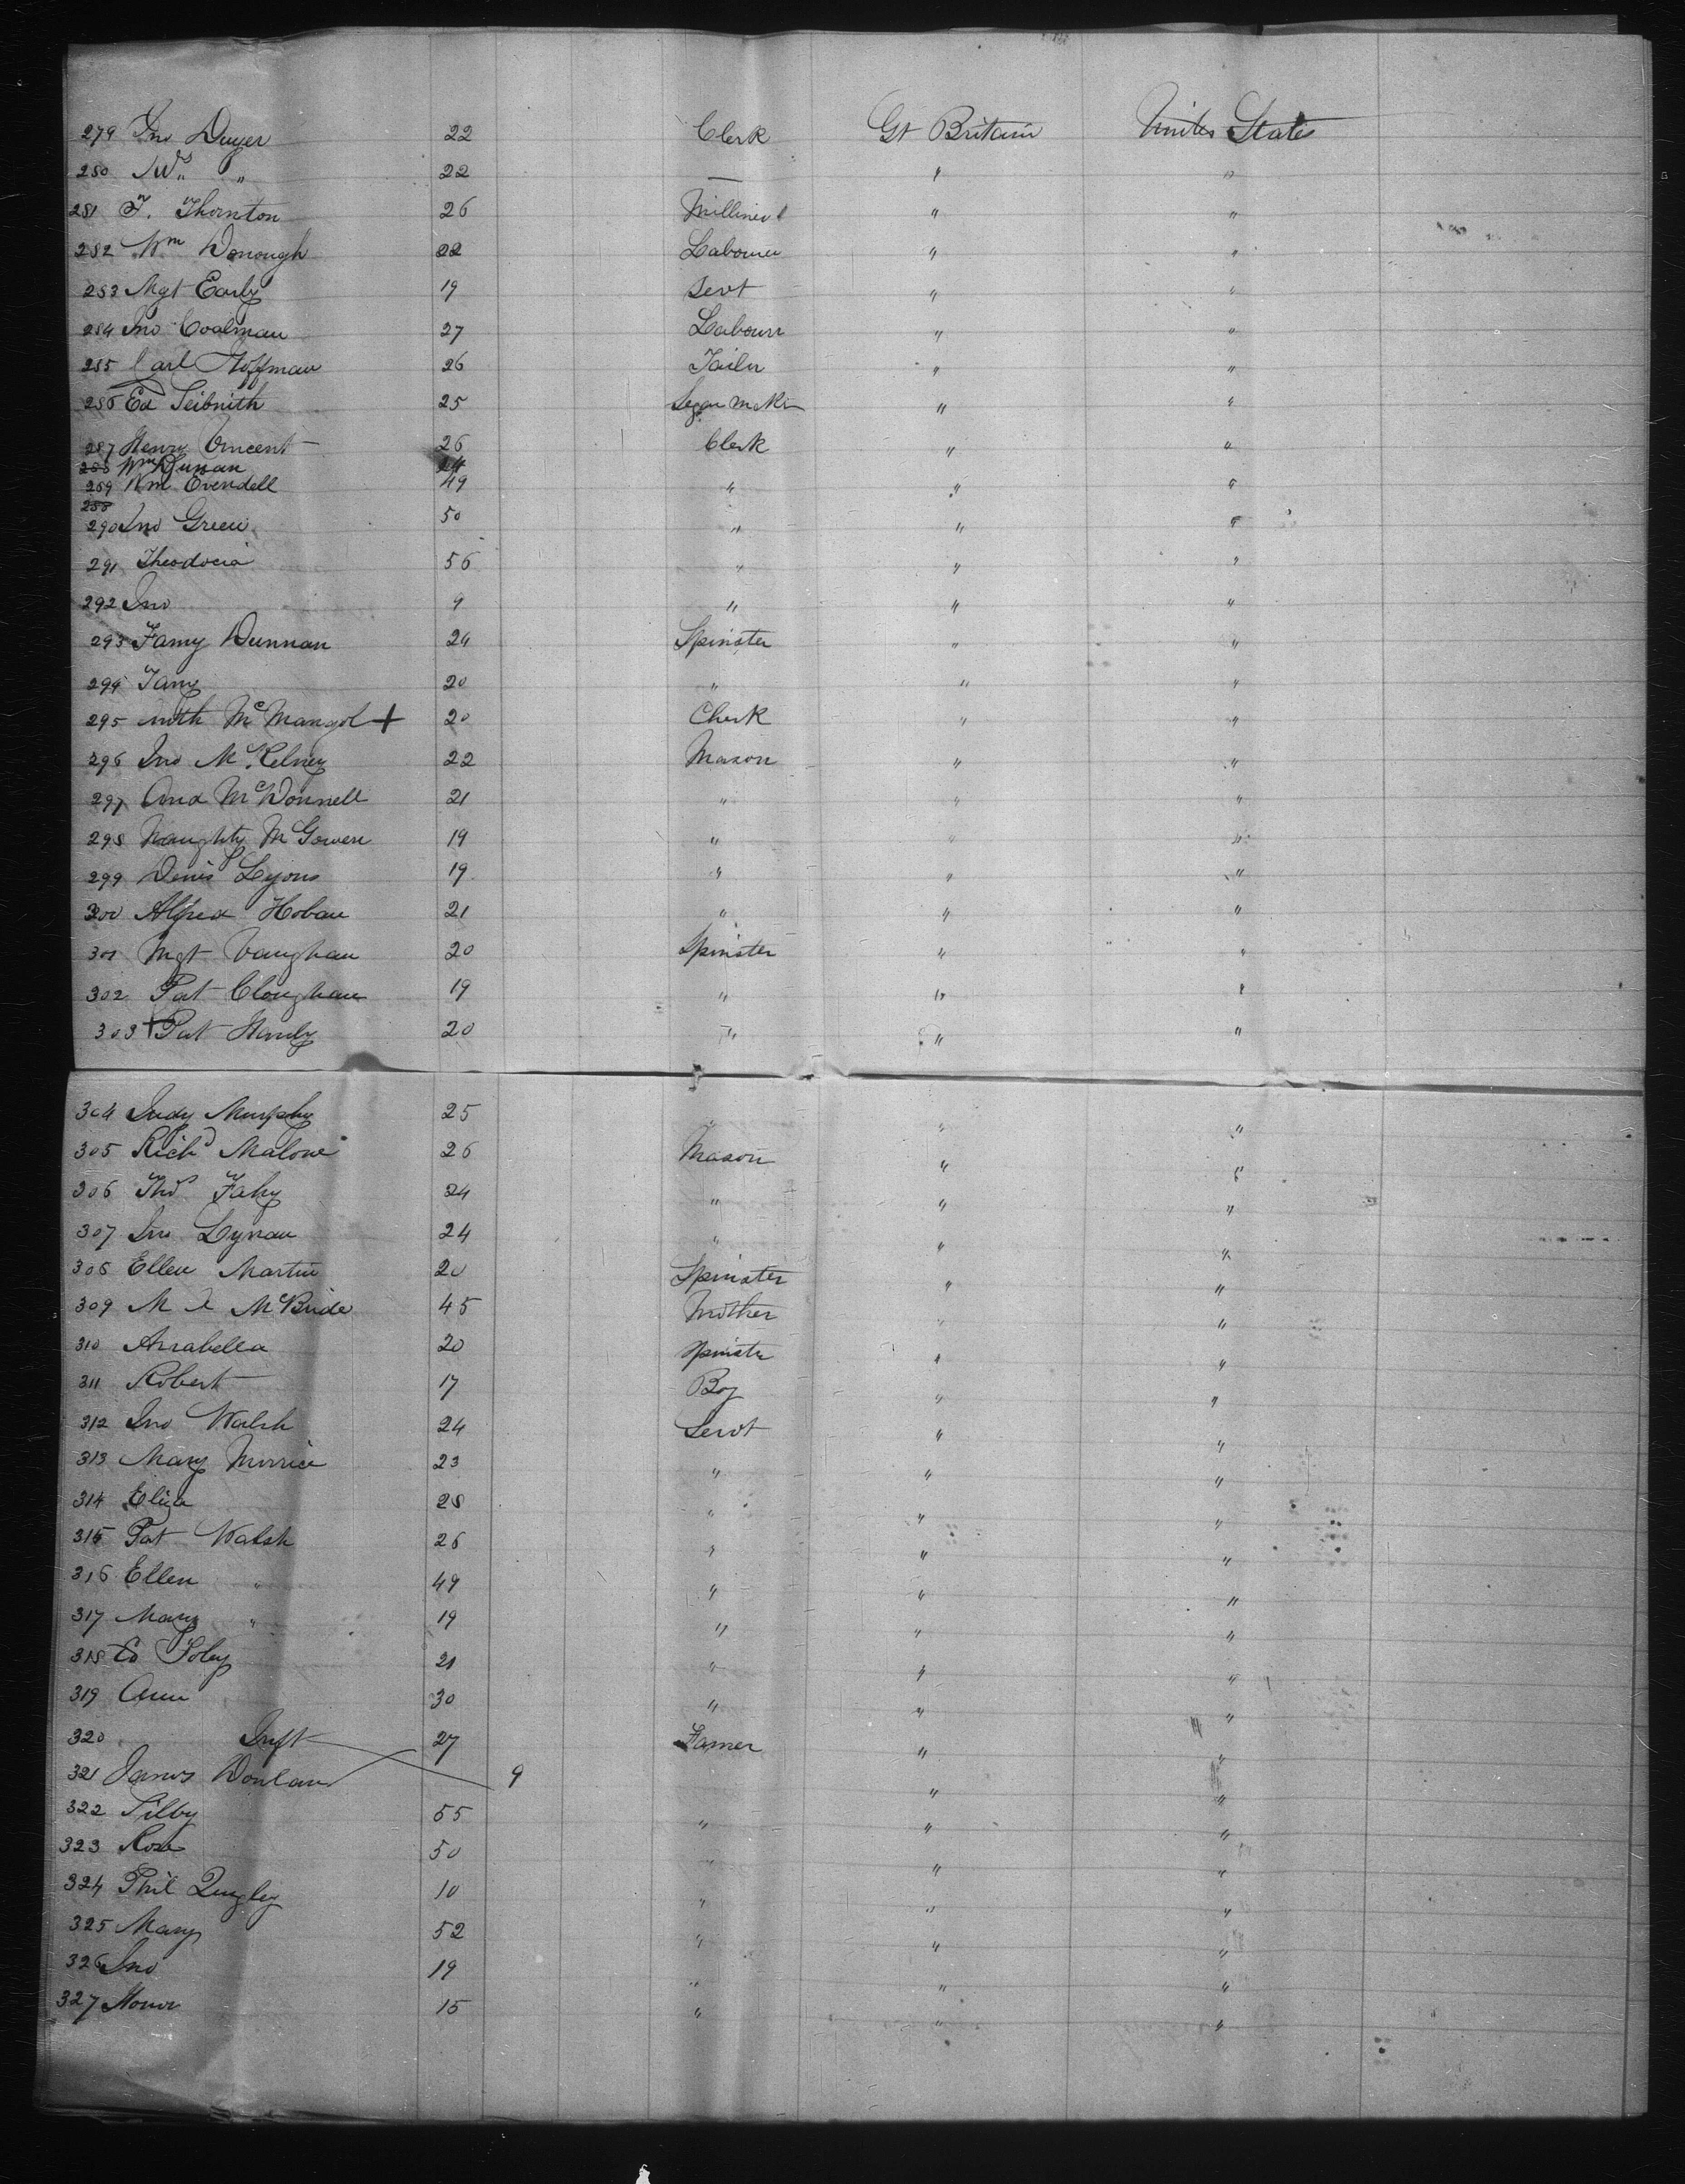 279 Jno Dwyer 22 Clerk Gt Britain United States
280 Ws " 22 — " "
281 F. Thornton 26 Milliner " "
282 Wm Donough 22 Labourer " "
283 Mgt Early 19 Servt " "
284 Jno Coalman 27 Labourr " "
285 Carl Hoffman 26 Tailor " "
286 Ed Seibnith 25 Segar Maker " "
287 Henry Vincent 26 Clerk " "
288 Wm Dunan 24
289 Wm Evendell 49 " " "
288
290 Jno Green 50 " " "
291 Theodocia 56 " " "
292 Jno 9 " " "
293 Fanny Dunnan 24 Spinster " "
294 Jane 20 " " "
295 McMangol + 20 Clerk " "
296 Jno McKelney 22 Mason " "
297 And McDonnell 21 " " "
298 Naughty McGowen 19 " " "
299 Denis Lyons 19 " " "
300 Alfred Hoban 21 " " "
301 Mgt Vaughan 20 Spinster " "
302 Pat Cloughan 19 " " "
303 + Pat Hanly 20 " " "
304 Judy Murphy 25 " " "
305 Richd Malone 26 Mason " "
306 Thos Fahy 24 " " "
307 Jno Lynan 24 " " "
308 Ellen Martin 20 Spinster " "
309 M A McBride 45 Mother " "
310 Arrabella 20 Spinstr " "
311 Robert 17 Boy " "
312 Jno Walsh 24 Servt " "
313 Mary Morrice 23 " " "
314 Eliza 28 " " "
315 Pat Walsh 26 " " "
316 Ellen " 49 " " "
317 Mary " 19 " " "
318 Ed Foley 21 " " "
319 Ann 30 " " "
320 Inft 27 Farmer " "
321 James Donlan 9 " "
322 Bilby 55 " " "
323 Rose 50 " " "
324 Phil Quigley 10 " " "
325 Mary 52 " " "
326 Jno 19 " " "
327 Honor 15 " " "